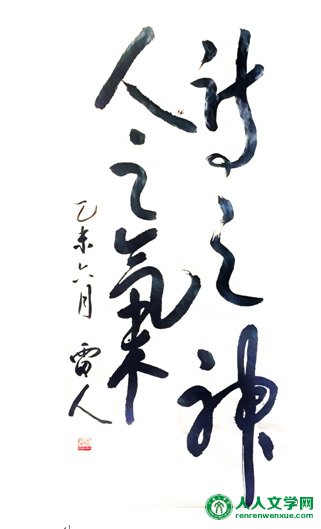 诗之神
人之氣
乙未六月 雷人
人人文学网
renrenwenxue.com